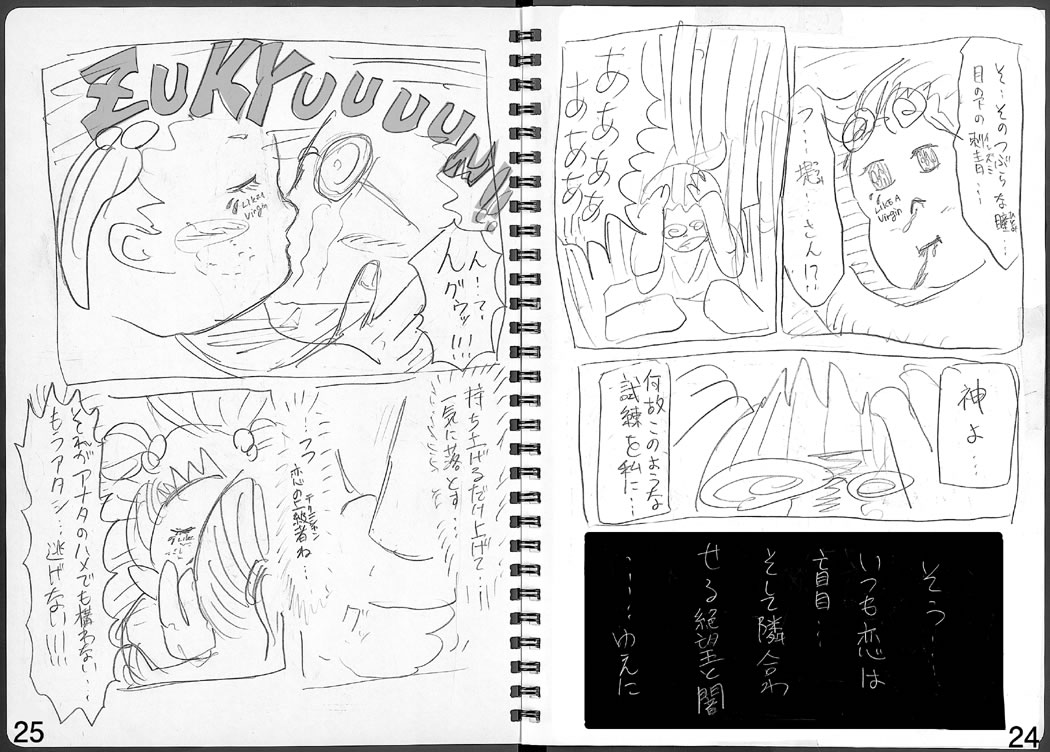 そ…そのつぶらな瞳…
ひとみ
目の下の刺青…
イレズミ
つ…
さん!?
LIKE A
Virgin
あああああ
ああああ
神よ…
何故このような
試練を私に…
そう……
いつも恋は
盲目…
そして隣合わ
せる絶望と闇
……ゆえに
24
ZUKYUUUUUN!!
LIKE A
Virgin
ん!?
んグウッ!!!
持ち上げるだけ上げて…
一気に落とす…
グッ
フフ
恋の上級者ね…
テクニシャン
Like
それがアナタのハメでも構わない…
もうアタシ…逃げない!!!!
25